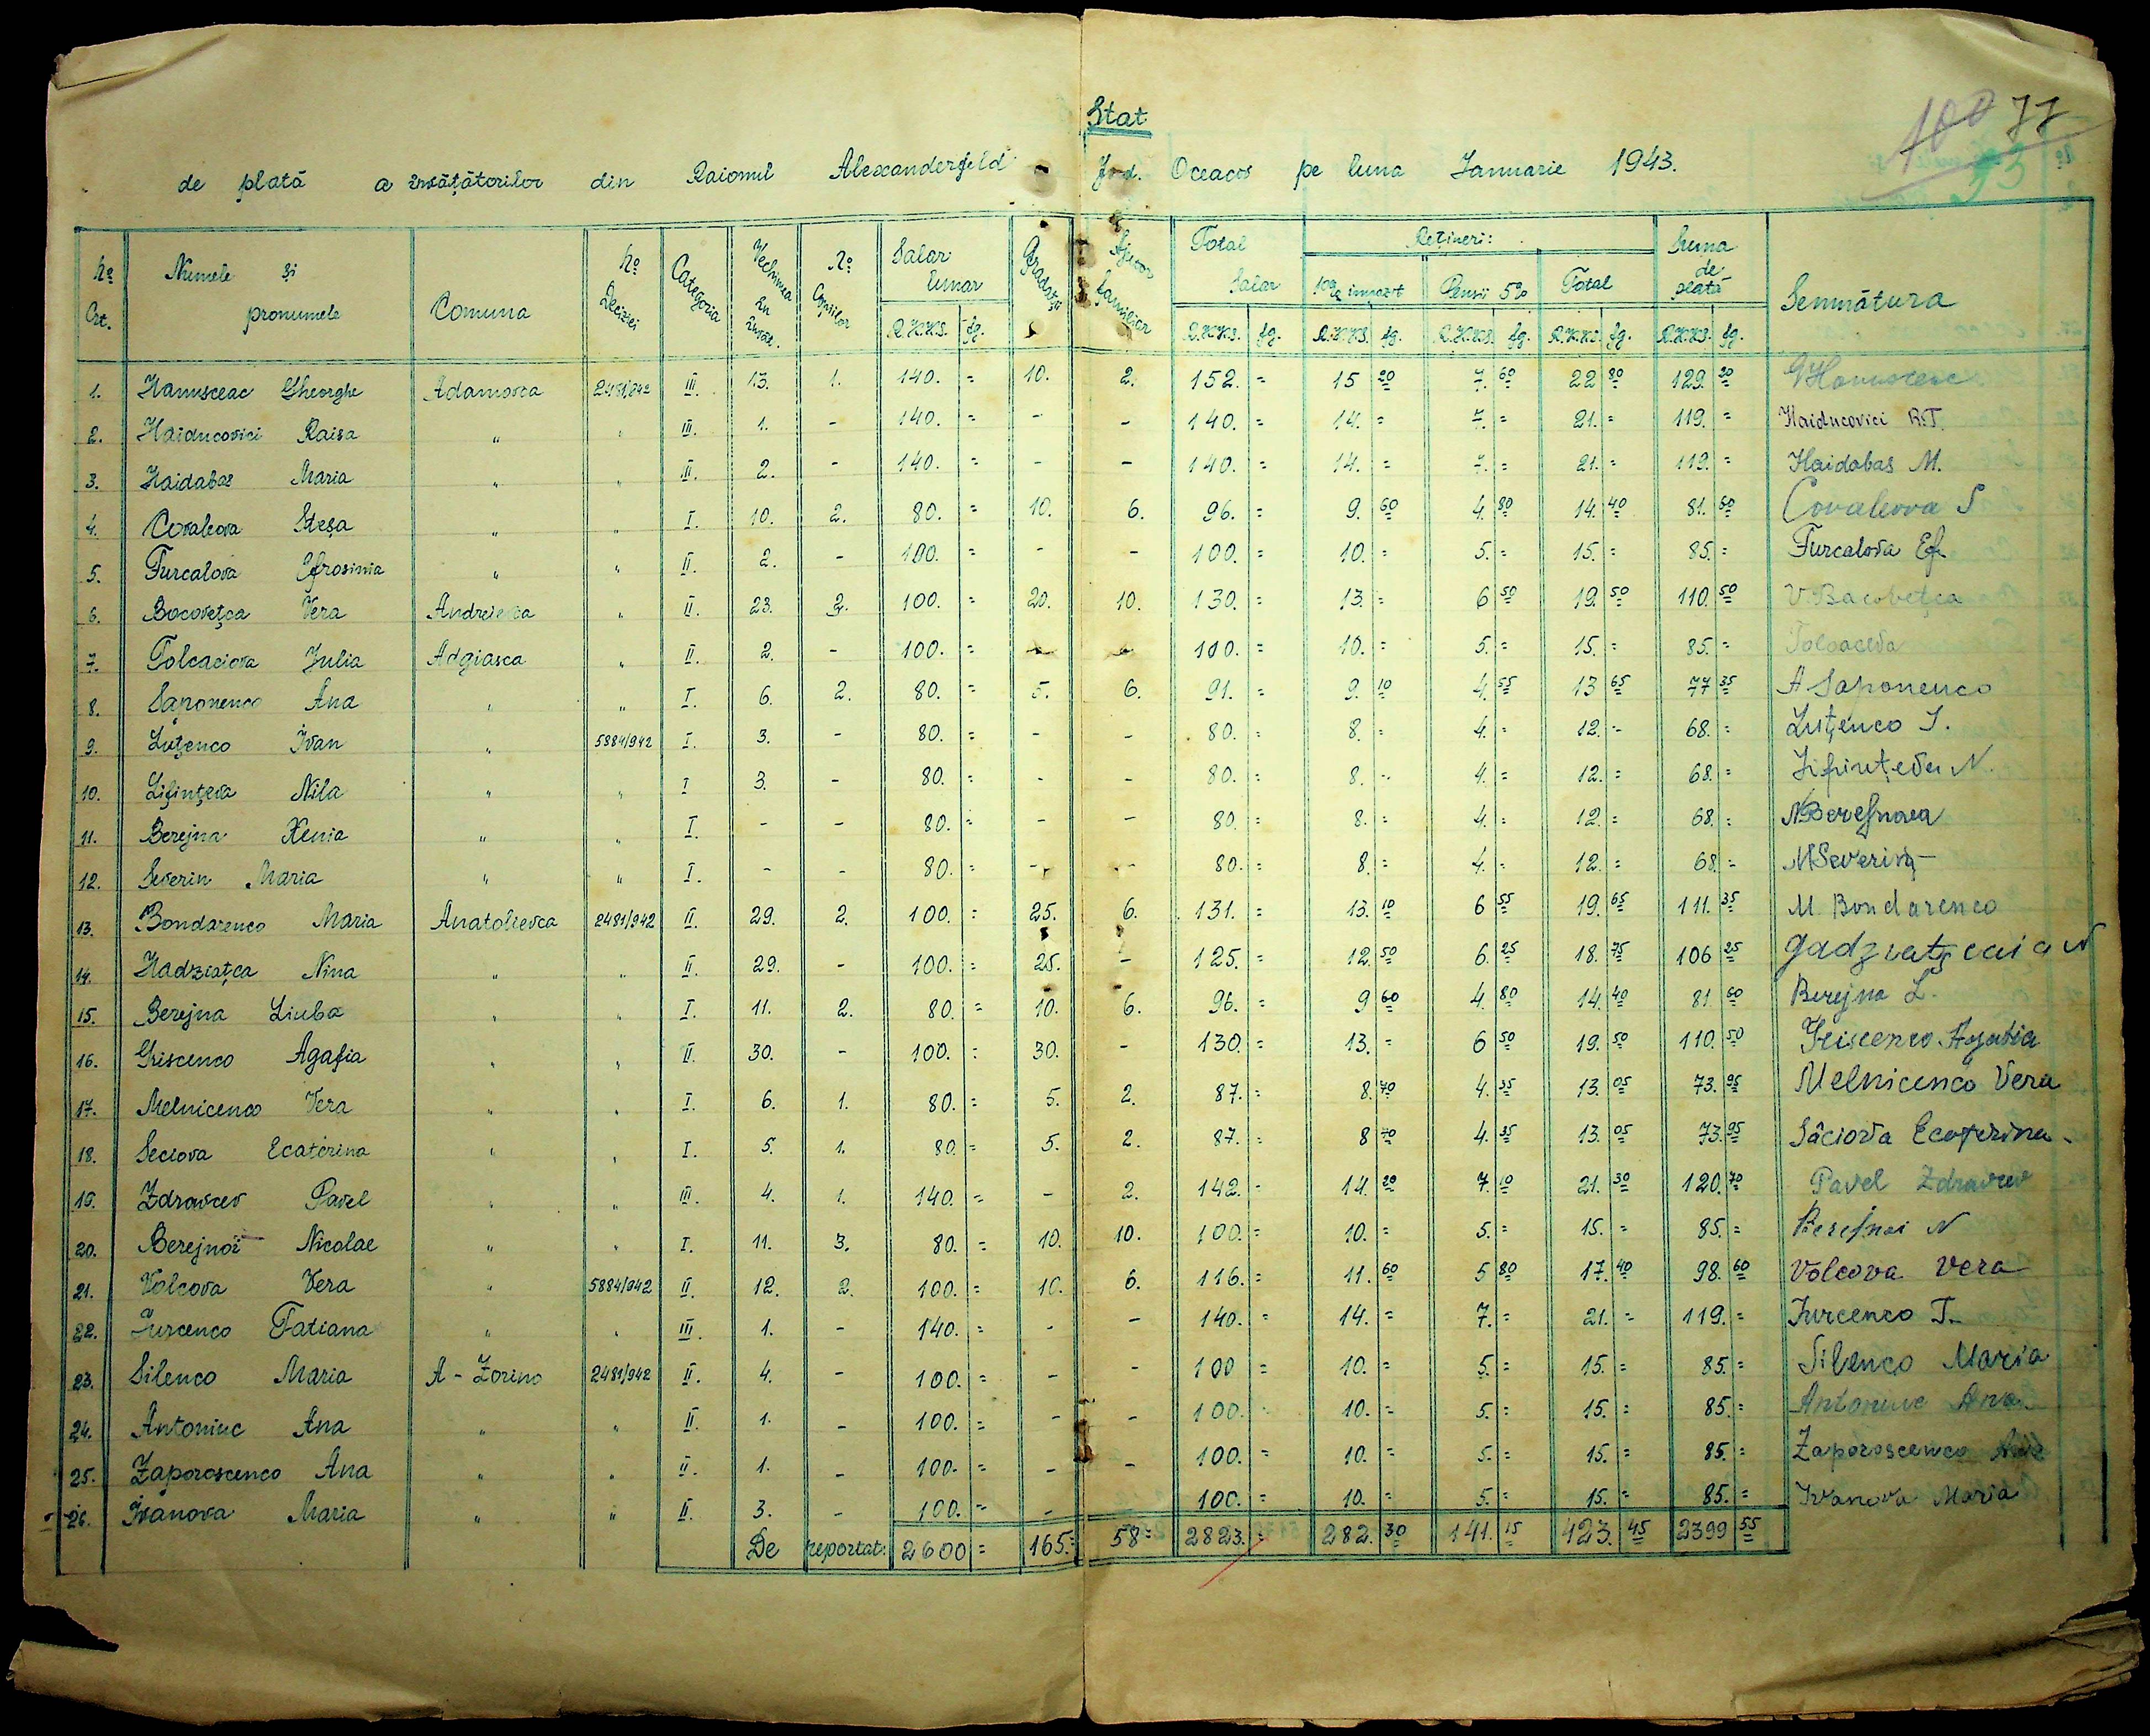 77
Stat
de plată a învățătorilor din Raionul Alexanderfeld Jud. Oceacov pe luna Ianuarie 1943.
No Crt. Numele și pronumele Comuna No Deciziei Categoria Vechimea în învăț. No Copiilor Salar lunar R.K.K.S. fg. Gradații Ajutor familiar Total Salar R.K.K.S. fg. Rețineri: 10% impozit R.K.K.S. fg. Pensii 5% R.K.K.S. fg. Total R.K.K.S. fg. Suma de plată R.K.K.S. fg. Semnătura
1. Hanusceac Gheorghe Adamovca 2481/942 III. 13. 1. 140. = 10. 2. 152. = 15 20 7. 60 22 80 129. 20 GHanusceac
2. Haiducovici Raisa " " III. 1. - 140. = - - 140. = 14. = 7. = 21. = 119. = Haiducovici R.T.
3. Haidabas Maria " " III. 2. - 140. = - - 140. = 14. = 7. = 21. = 119. = Haidabas M.
4. Covaleova Steșa " " I. 10. 2. 80. = 10. 6. 96. = 9. 60 4. 80 14. 40 81. 60 Covaleova S
5. Furcalova Efrosinia " " II. 2. - 100. = - - 100. = 10. = 5. = 15. = 85. = Furcalova Ef.
6. Bocovețca Vera Andreievca " II. 23. 2. 100. = 20. 10. 130. = 13. = 6 50 19. 50 110. 50 V. Bacovețca
7. Tolcaciova Julia Adgiasca " II. 2. - 100. = - - 100. = 10. = 5. = 15. = 85. =
8. Saponenco Ana " " I. 6. 2. 80. = 5. 6. 91. = 9. 10 4. 55 13 65 77 35 A Saponenco
9. Luțenco Ivan " 5884/942 I. 3. - 80. = - - 80. = 8. = 4. = 12. = 68. = Luțenco I.
10. Lifințeva Nila " " I 3. - 80. = - - 80. = 8. = 4. = 12. = 68. = Lifințeva N.
11. Berejna Xenia " " I. - - 80. = - - 80. = 8. = 4. = 12. = 68. =
12. Severin Maria " " I. - - 80. = - - 80. = 8. = 4. = 12. = 68. = MSeverin
13. Bondarenco Maria Anatolievca 2481/942 II. 29. 2. 100. = 25. 6. 131. = 13. 10 6 55 19. 65 111. 35 M. Bondarenco
14. Hadziațca Nina " " II. 29. - 100. = 25. - 125. = 12. 50 6. 25 18. 75 106 25 gadziațcaia N
15. Berejna Liuba " " I. 11. 2. 80. = 10. 6. 96. = 9 60 4. 80 14. 40 81. 60 Berejna L.
16. Griscenco Agafia " " II. 30. - 100. = 30. - 130. = 13. = 6 50 19. 50 110. 50 Griscenco Agafia
17. Melnicenco Vera " " I. 6. 1. 80. = 5. 2. 87. = 8. 70 4. 35 13. 05 73. 95 Melnicenco Vera
18. Seciova Ecaterina " " I. 5. 1. 80. = 5. 2. 87. = 8 70 4. 35 13. 05 73. 95 Sâciova Ecaterina
19. Zdravcev Pavel " " III. 4. 1. 140. = - 2. 142. = 14. 20 7. 10 21. 30 120. 70 Pavel Zdravcev
20. Berejnoi Nicolae " " I. 11. 3. 80. = 10. 10. 100. = 10. = 5. = 15. = 85. = Berejnoi N
21. Volcova Vera " 5884/942 II. 12. 2. 100. = 10. 6. 116. = 11. 60 5 80 17. 40 98. 60 Volcova Vera
22. Jurcenco Tatiana " " III. 1. - 140. = - - 140. = 14. = 7. = 21. = 119. = Jurcenco T.
23. Silenco Maria A - Zorino 2481/942 II. 4. - 100. = - - 100 = 10. = 5. = 15. = 85. = Silenco Maria
24. Antoniuc Ana " " II. 1. - 100. = - - 100. = 10. = 5. = 15. = 85. = Antoniuc Ana
25. Zaporoscenco Ana " " II. 1. - 100. = - - 100. = 10. = 5. = 15. = 85. = Zaporoscenco Ana
26. Ivanova Maria " " II. 3. - 100. = - 100. = 10. = 5. = 15. = 85. = Ivanova Maria
De reportat: 2600 = 165. = 58 = 2823. = 282. 30 141. 15 423. 45 2399 55